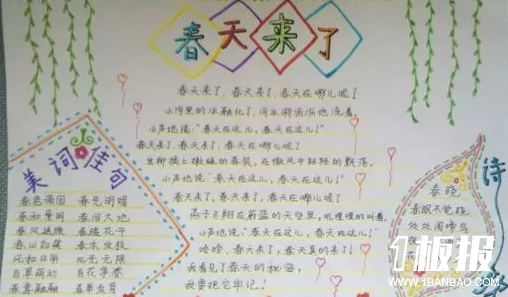 春天来了
春天来了，春天来了，春天在哪儿呢？
小河里的冰融化了，河水哗哗哗地流着，
小声地说：“春天在这儿，春天在这儿！”
春天来了，春天来了，春天在哪儿呢？
柳树换上嫩绿的春装，在微风中轻轻的飘荡，
小声地说“春天在这儿，春天在这儿！”
春天来了，春天来了，春天在哪儿呢？
燕子飞翔在蔚蓝的天空里，叽哩哩的叫着，
小声地说“春天在这儿，春天在这儿！
哈哈，春天来了，春天真的来了！
我看见了春天的秘密，
我要把它牢记！
美词佳句
春色满园 春光明媚
春和景明 春回大地
春风拂面 春暖花开
春山如笑 春木发枝
风和日丽 风光无限
百草萌动 百花争春
春意融融 春草发芽
诗
春晓
春眠不觉晓
处处闻啼鸟
1板报
WWW.1BANBAO.COM